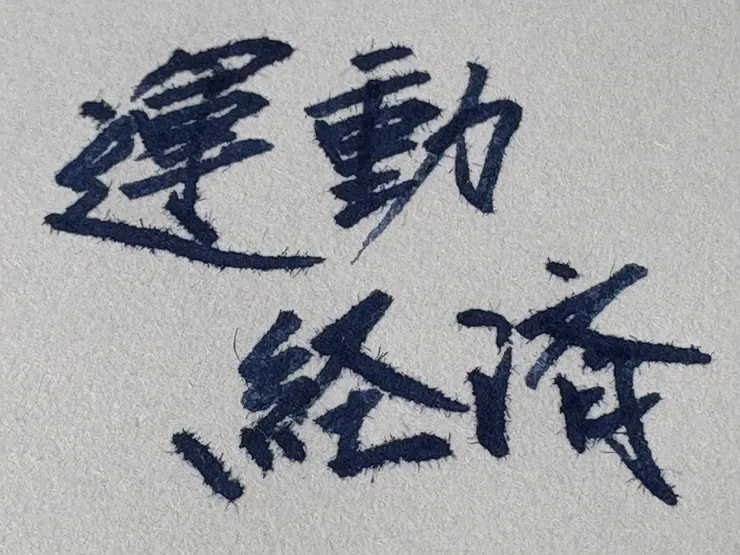 運動
経済